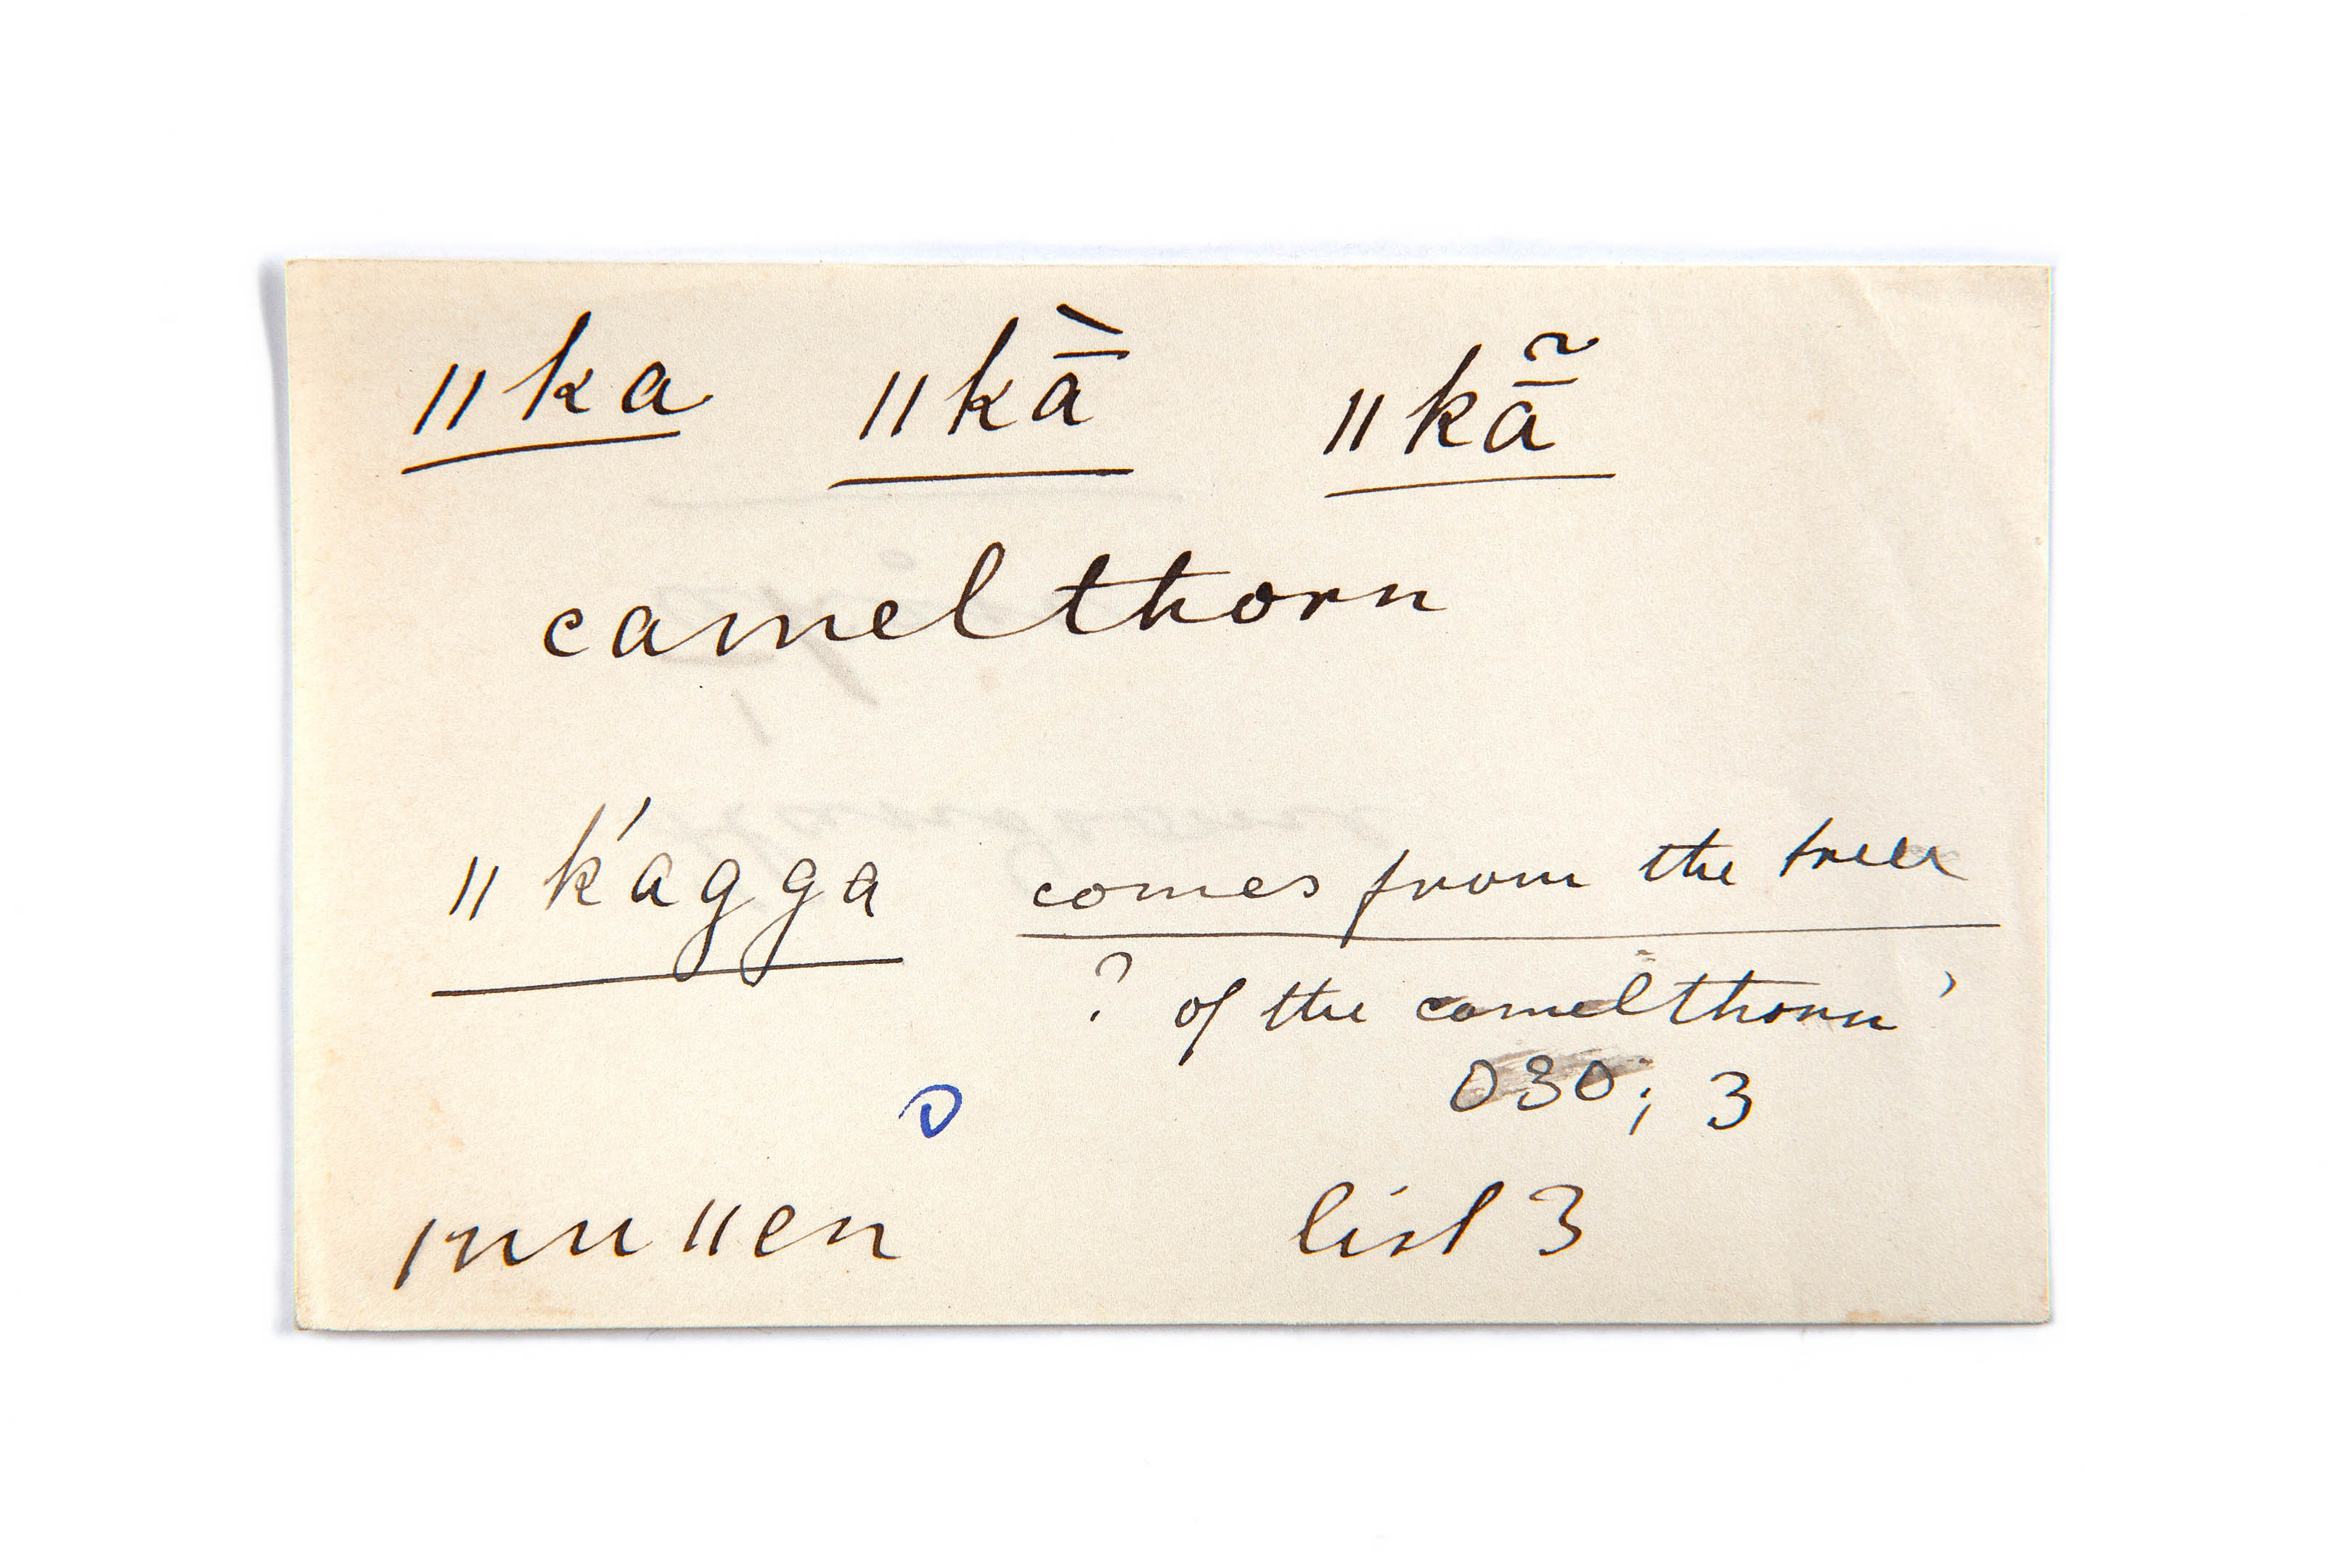 ǁka ǁkā̀ ǁkā̃
camelthorn
ǁk'agga comes from the tree
? of the camelthorn'
D 030; 3
ǀnuǁen list 3